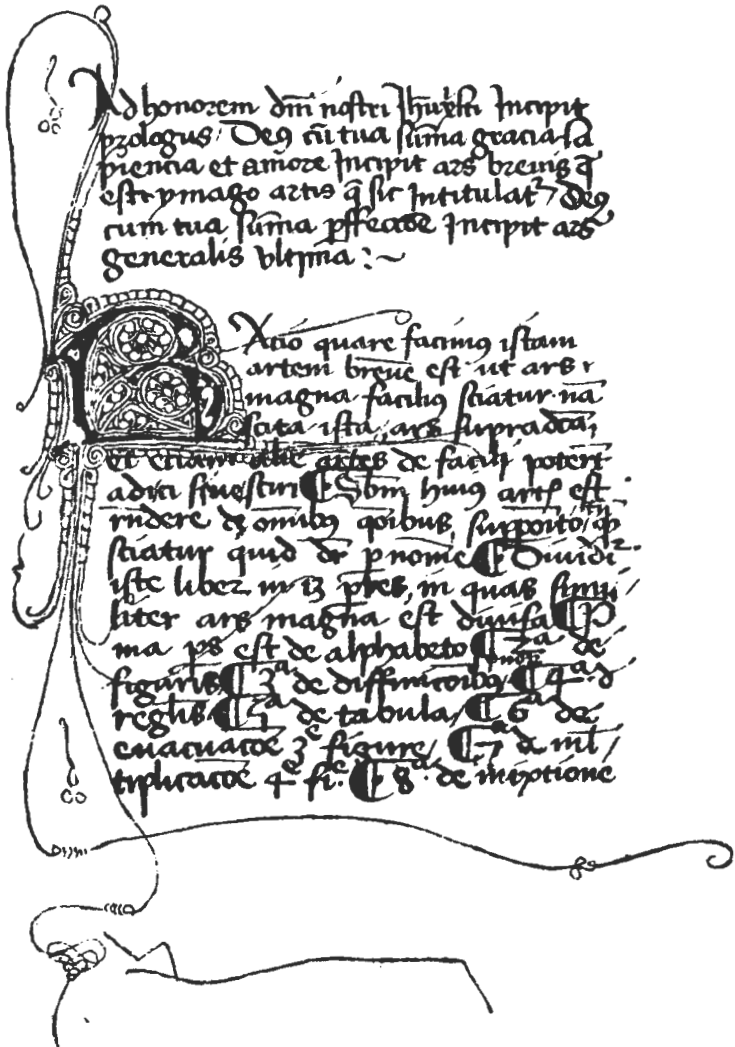 Ad honorem dm̄ nostri Jh̄u xp̄i Incipit
prologus Deꝰ cū tua sūma gracia sa
piencia et amore Incipit ars brevis q̄
est ymago artis q̄ sic Intitulat᷑ Deꝰ
cum tua sūma ꝑffectōe Incipit ars
generalis vltīma :~
Ratio quare facimꝰ istam
artem brevē est ut ars
magna faciliꝰ sciatur nā
scita ista ars supradcā
et etiam alie artes de facili poterūt
adisci
sciatur quid dr̄ nomē ¶ Dividit᷑
iste liber in 13 ꝑtes, in quas simi
liter ars magna est divisa ¶ P̄
ma ꝑs est de alphabeto ¶ 2ᵃ de
figuris ¶ 3ᵃ de diffinicōibꝰ ¶ 4ᵃ d
reglis ¶ de tabula, ¶ 6ᵃ de
euacuacōe 3ᵉ figure, ¶ 7ᵃ d ml̄
tiplicacōe 4ᵉ fi.ᵉ ¶ 8ᵃ. de mixtione